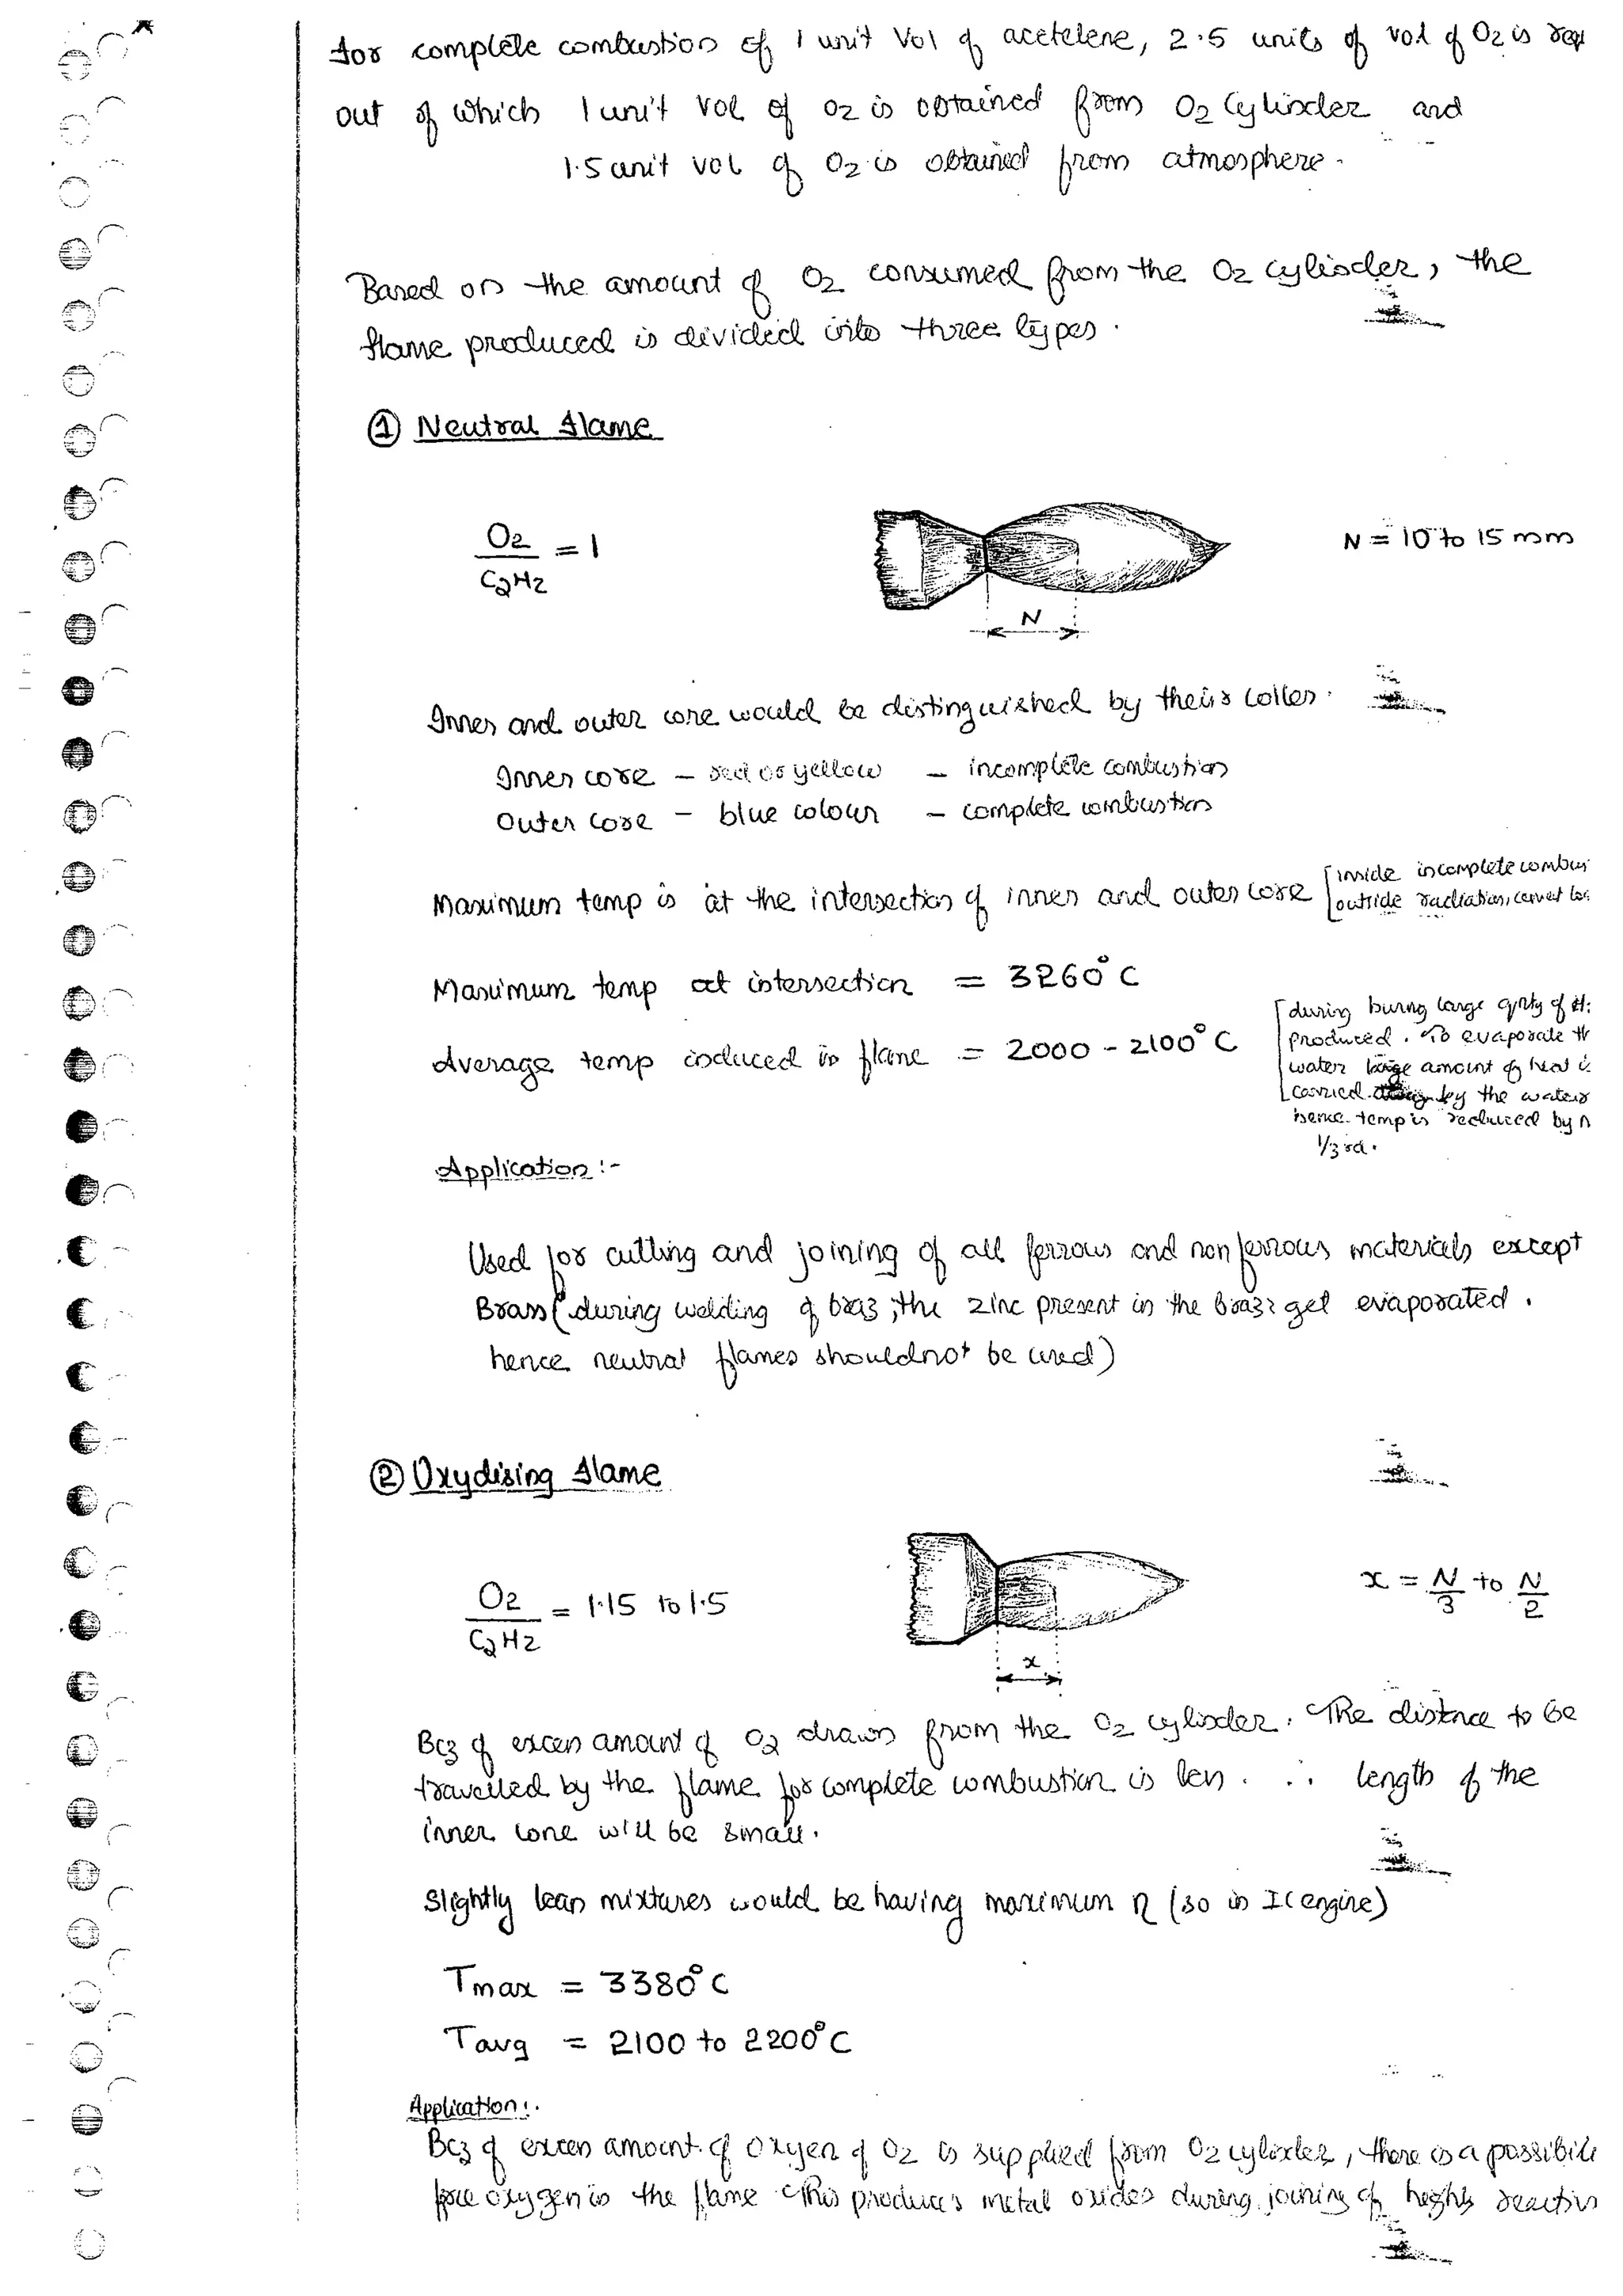 for complete combustion of 1 unit Vol of acetelene, 2.5 units of vol of O2 is req
out of which 1 unit vol of O2 is obtained from O2 Cylinder and
1.5 unit vol of O2 is obtained from atmosphere.
Based on the amount of O2 consumed from the O2 cylinder, the
flame produced is divided into three types.
① Neutral flame
O2/C2H2 = 1
N = 10 to 15 mm
N
Inner and outer cone would be distinguished by their coller.
Inner core – red or yellow – incomplete combustion
Outer core – blue colour – complete combustion
Maximum temp is at the intersection of inner and outer core [inside incomplete combus
outside radiation,
Maximum temp at intersection = 3260°C
Average temp induced in flame = 2000 – 2100°C
[during burng large qnty of
produced. To evaporate th
water large amount of heat i
carried by the water
hence temp is reduced by
1/3rd.
Application :-
Used for cutting and joining of all ferrous and non ferrous materials except
Brass (during welding of bras, the zinc present in the bras get evaporated.
hence neutral flames shouldnot be used)
② Oxydising flame
O2/C2H2 = 1.15 to 1.5
x = N/3 to N/2
x
Bcz of excess amount of O2 drawn from the O2 cylinder. The distnce to be
travelled by the flame for complete combustion is less. ∴ length of the
inner cone will be small.
Slightly lean mixtures would be having maximum η (so in IC engine)
Tmax = 3380°C
Tavg = 2100 to 2200°C
Application :.
Bcz of excess amount of Oxyen of O2 is supplied from O2 cylinder, there is a possibili
free oxygen in the flame. This produces metal oxides during joining of heghly reactiv